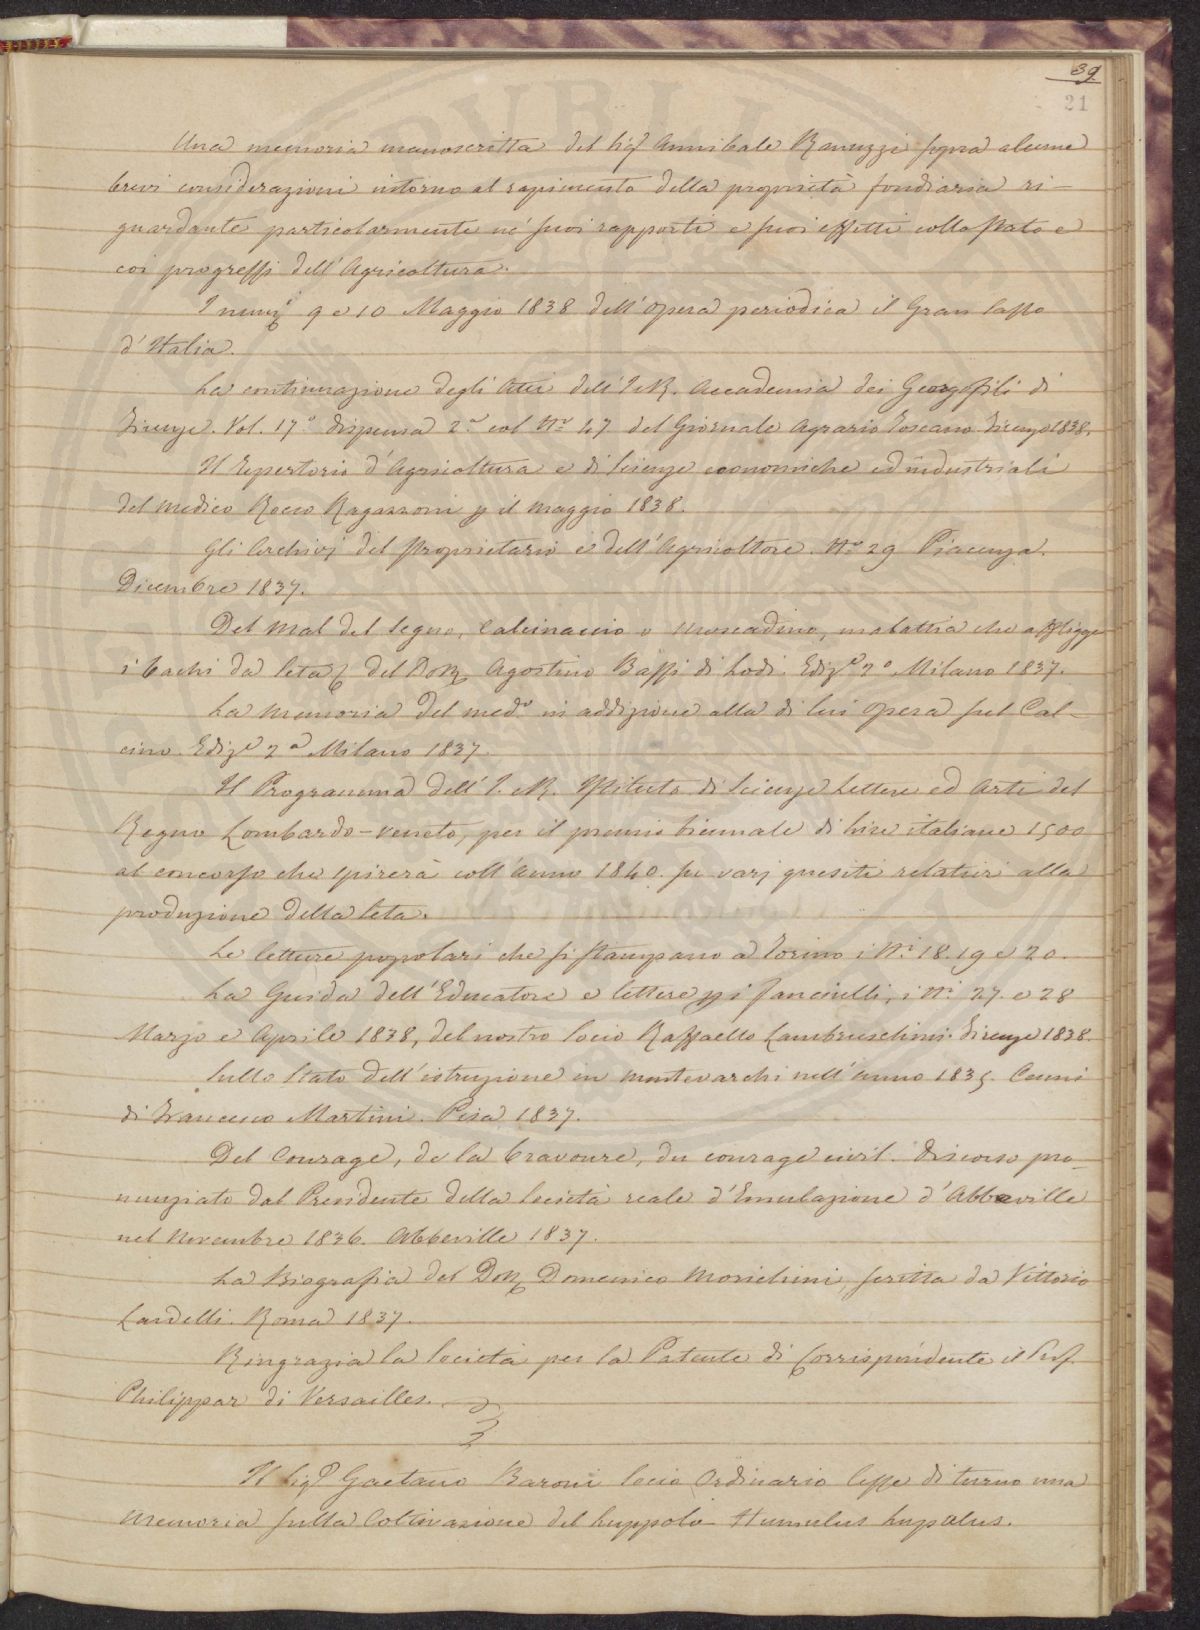 39.
21
Una memoria manoscritta del Sig.r Annibale Ranuzzi sopra alcune
brevi considerazioni intorno al rapimento della proprietà fondiaria ri-
guardante particolarmente ne' suoi rapporti e suoi effetti collo stato e
coi progressi dell'Agricoltura.
I num.i 9 e 10 Maggio 1838 dell'opera periodica il Gran Sasso
d'Italia.
La continuazione degli Atti dell'I e R. Accademia dei Georgofili di
Firenze. Vol. 17.o dispensa 2.a col N.o 47 del Giornale Agrario Toscano Firenze 1838.
Il Repertorio d'Agricoltura e di Scienze economiche ed industriali
del medico Rocco Ragazzoni p il maggio 1838.
Gli Archivj del Proprietario e dell'Agricoltore. N.o 29 Piacenza.
Dicembre 1837.
Del Mal del Segno, Calcinaccio o Moscadino, malattia che affligge
i bachi da Seta del Dott. Agostino Bassi di Lodi. Ediz.e 2.a Milano 1837.
La memoria del med.o in addizione alla di lui opera sul Cal-
cino. Ediz.e 2.a Milano 1837.
Il Programma dell'I. e R. Istituto di Scienze Lettere ed Arti del
Regno Lombardo-Veneto, per il premio biennale di Lire italiane 1500
al concorso che spirerà coll'anno 1840. su varj quesiti relativi alla
produzione della Seta.
Le letture popolari che si stampano a Torino i N.i 18. 19 e 20.
La Guida dell'Educatore e letture p i fanciulli, i N.i 27. e 28
Marzo e Aprile 1838, del nostro Socio Raffaello Lambruschini. Firenze 1838.
Sullo Stato dell'istruzione in Montevarchi nell'anno 1835. Cenni
di Francesco Martini. Pisa 1837.
Del Courage, de la bravoure, du courage civil. Discorso pro-
nunziato dal Presidente della Società reale d'Emulazione d'Abbeville
nel Novembre 1836. Abbeville 1837.
La Biografia del Dott. Domenico Morichini, scritta da Vittorio
Sardelli. Roma 1837.
Ringrazia la Società per la Patente di Corrispondente il Prof.
Philippar di Versailles.
Il Sig.r Gaetano Baroni Socio Ordinario lesse di turno una
Memoria sulla Coltivazione del Luppolo Humulus lupulus.